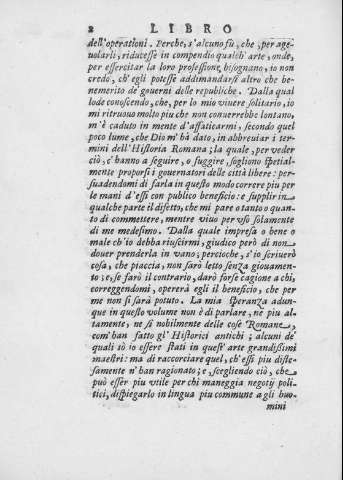 2 LIBRO
dell'operationi. Perche, s'alcuno fù, che, per age-
uolarli, riducesse in compendio qualch' arte, onde,
per essercitar la loro professione, bisognano, io non
credo, ch'egli potesse addimandarsi altro che be-
nemerito de' gouerni delle republiche. Dalla qual
lode conoscendo, che, per lo mio viuere solitario, io
mi ritruouo molto piu che non conuerrebbe lontano,
m'è caduto in mente d'affaticarmi, secondo quel
poco lume, che Dio m'hà dato, in abbreuiar i ter-
mini dell'Historia Romana; la quale, per veder
ciò, c'hanno a seguire, o fuggire, sogliono spetial-
mente proporsi i gouernatori delle città libere: per-
suadendomi di farla in questo modo correre piu per
le mani d'essi con publico beneficio: e supplir in
qualche parte il difetto, che mi pare o tanto o quan-
to di commettere, mentre viuo per vso solamente
di me medesimo. Dalla quale impresa o bene o
male ch'io debba riuscirmi, giudico però di non
douer prenderla in vano; percioche, s'io scriuerò
cosa, che piaccia, non sarò letto senza giouamen-
to; e, se farò il contrario, darò forse cagione a chi,
correggendomi, opererà egli il beneficio, che per
me non si sarà potuto. La mia speranza adun-
que in questo volume non è di parlare, ne piu al-
tamente, ne sì nobilmente delle cose Romane,
com'han fatto gl'Historici antichi; alcuni de'
quali sò io essere stati in quest' arte grandissimi
maestri: ma di raccorciare quel, ch'essi piu diste-
samente n'han ragionato; e, scegliendo ciò, che
può esser piu vtile per chi maneggia negotij poli-
tici, dispiegarlo in lingua piu commune a gli huo-
mini